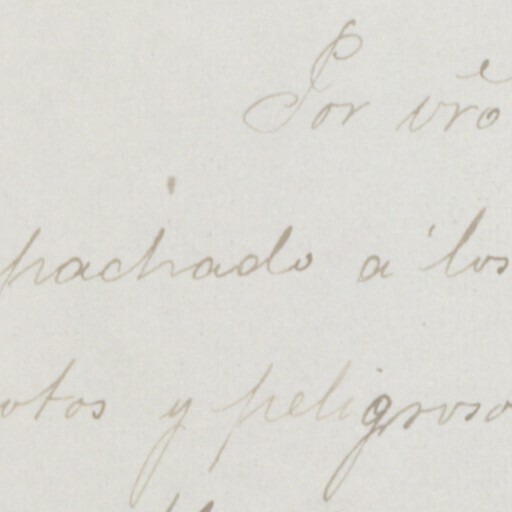 Por vrõ
pachado á los
otos y peligroso